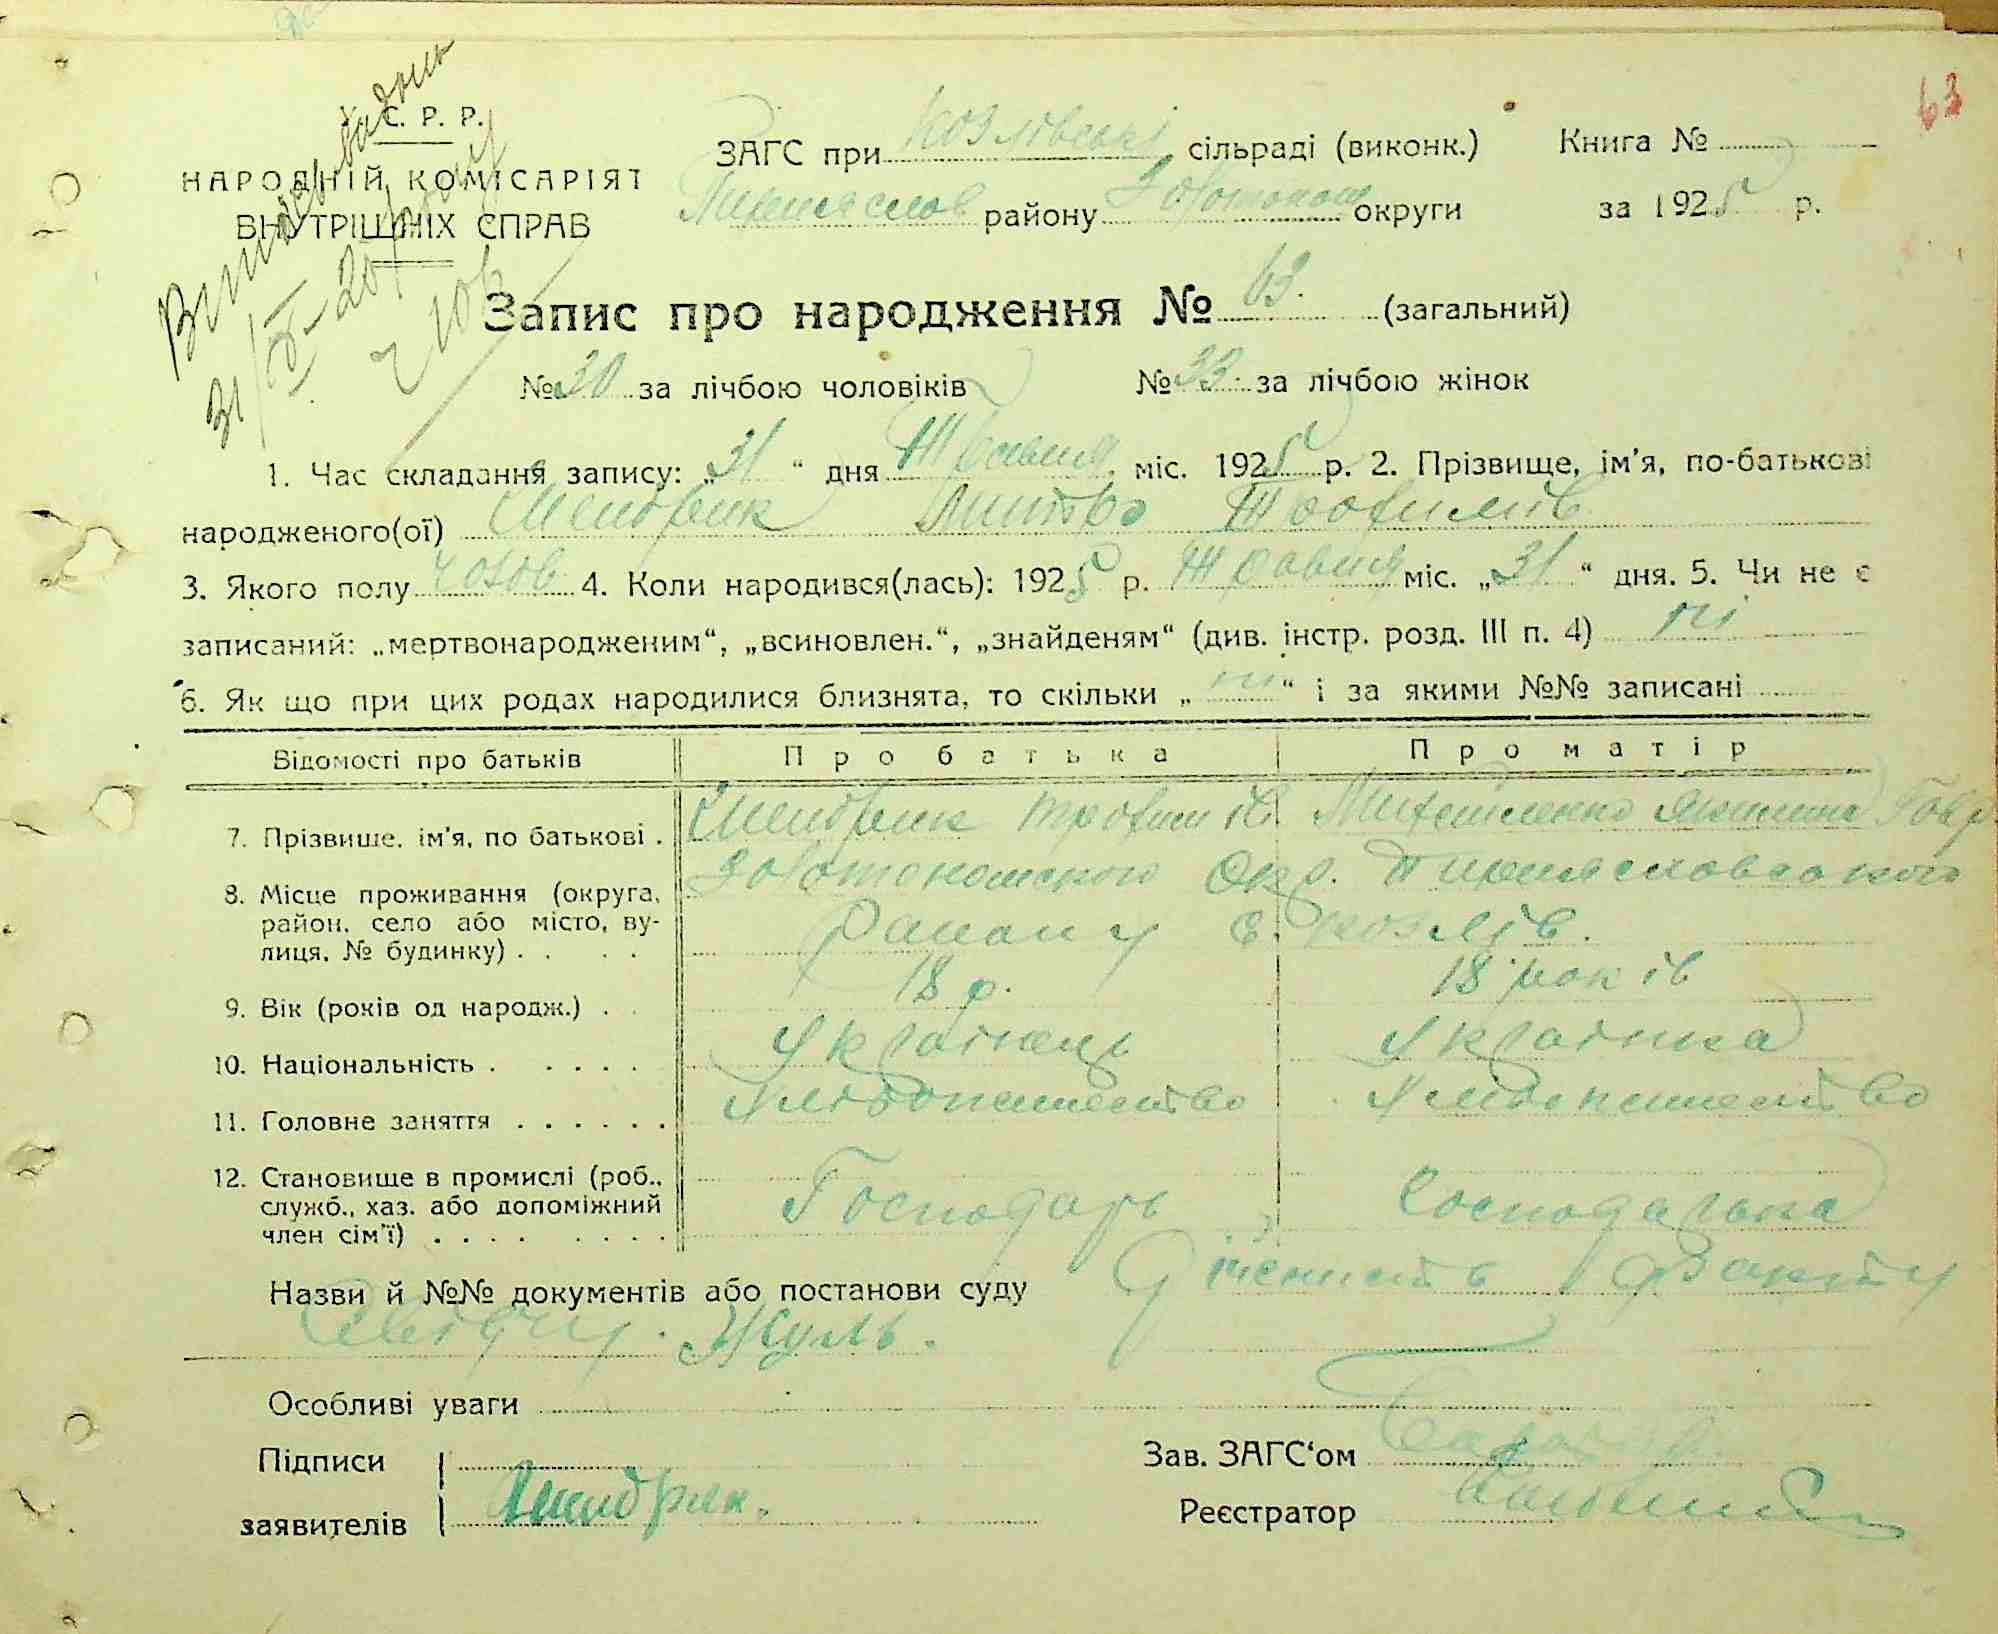 63
У. С. Р. Р.
НАРОДНІЙ КОМІСАРІЯТ
ВНУТРІШНІХ СПРАВ
ЗАГС при Козлівські сільраді (виконк.) Книга №
району Золотонош округи за 1925 р.
Запис про народження № 63. (загальний)
№ 30 за лічбою чоловіків № 33 за лічбою жінок
1. Час складання запису: „31“ дня Травня міс. 1925 р. 2. Прізвище, ім'я, по-батькові
народженого(ої) Шендрик Дмитро Трофимів
3. Якого полу чолов 4. Коли народився(лась): 1925 р. Травня міс. „31“ дня. 5. Чи не є
записаний: „мертвонародженим“, „всиновлен.“, „знайденям“ (див. інстр. розд. III п. 4) ні
6. Як що при цих родах народилися близнята, то скільки „ні“ і за якими №№ записані
Відомості про батьків Про батька Про матір
7. Прізвише, ім'я, по батькові . Шендрик Трофим Якилина
8. Місце проживання (округа, Золотоношського Окр.
район, село або місто, ву- Району с. Козлів.
лиця, № будинку) . . . .
9. Вік (років од народж.) . . 18 р. 18 років
10. Національність . . . . . Українець Українка
11. Головне заняття . . . . . . Хліборобство Хліборобство
12. Становище в промислі (роб., Господарь Господарька
служб., хаз. або допоміжний
член сім'ї) . . . . . . . .
Назви й №№ документів або постанови суду Дійсність факту
Свідчу. Жуль.
Особливі уваги
Підписи Зав. ЗАГС'ом
заявителів Шендрик. Реєстратор